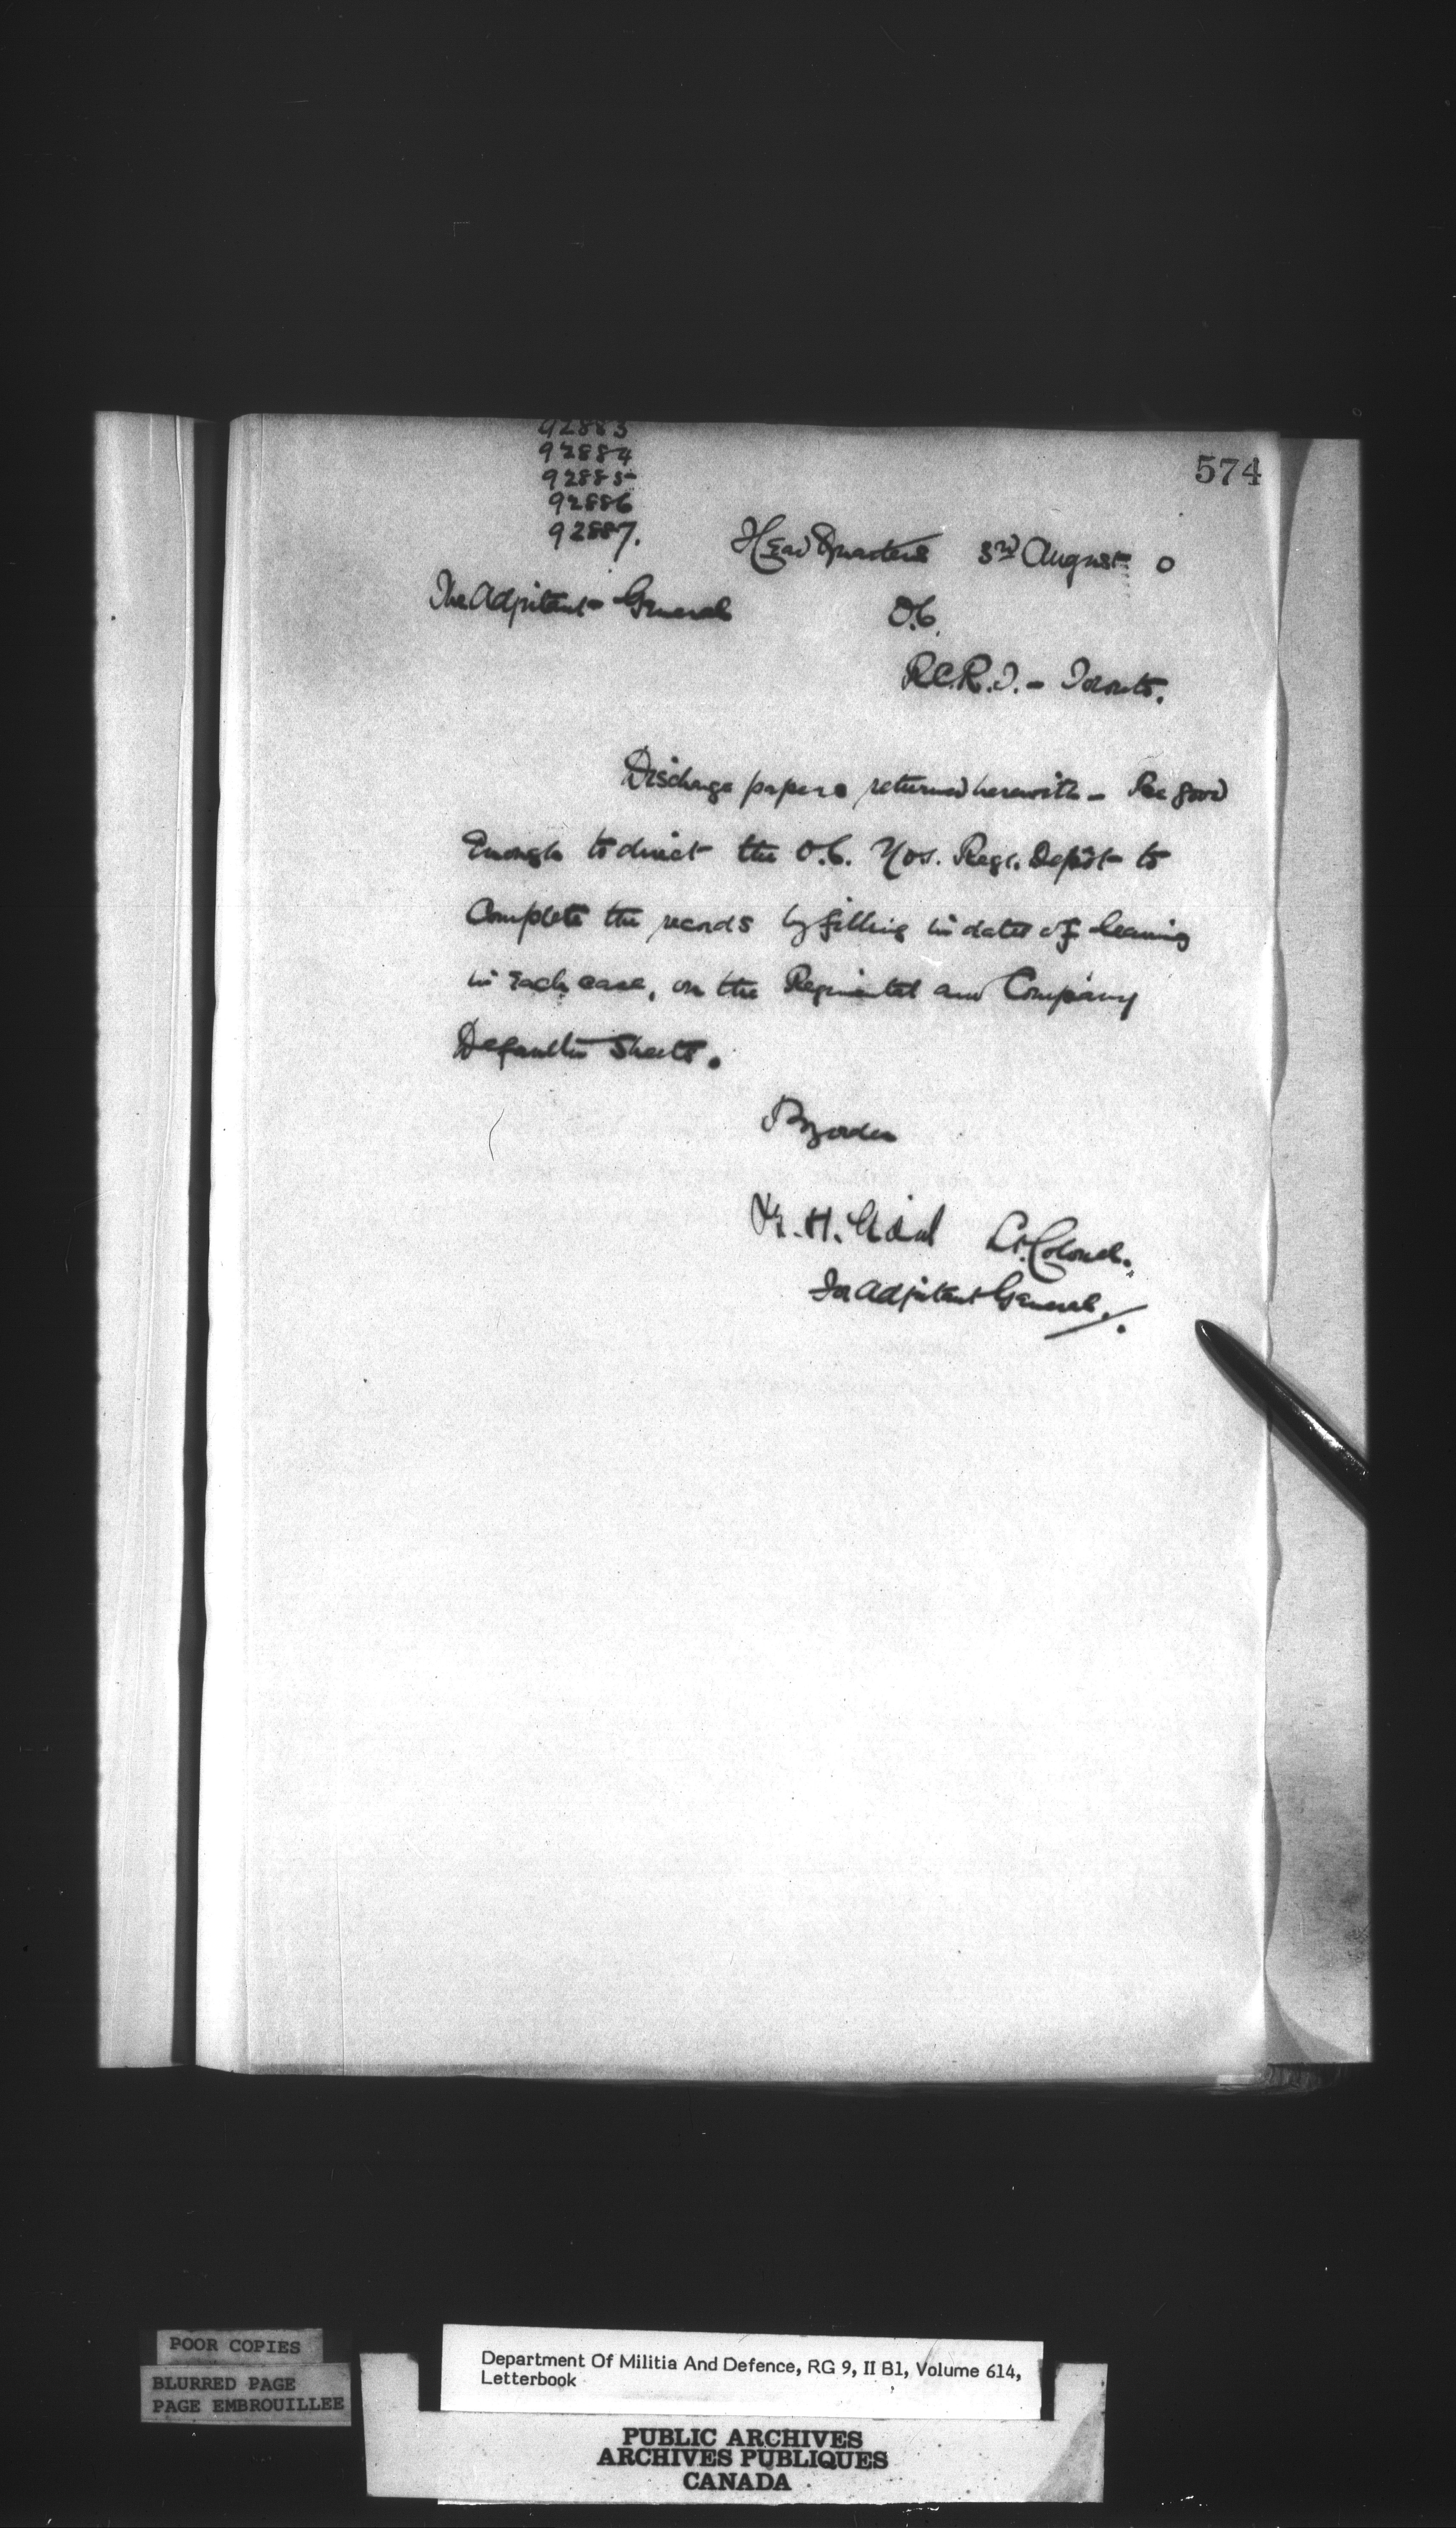 92883
92884
92885
92886
92887.
574
Head Quarters 3rd August 0
The Adjutant General
O.C.
R.C.R.I. - Toronto.
Discharge papers returned herewith - Be good
Enough to direct the O.C. No 1. Regl. Depôt to
Complete the records by filling in dates of leaving
in Each case, on the Regimental and Company
Defaulter Sheets.
By order
H. Vidal Lt. Colonel.
For Adjutant General.
POOR COPIES
BLURRED PAGE
PAGE EMBROUILLEE
Department Of Militia And Defence, RG 9, II B1, Volume 614,
Letterbook
PUBLIC ARCHIVES
ARCHIVES PUBLIQUES
CANADA